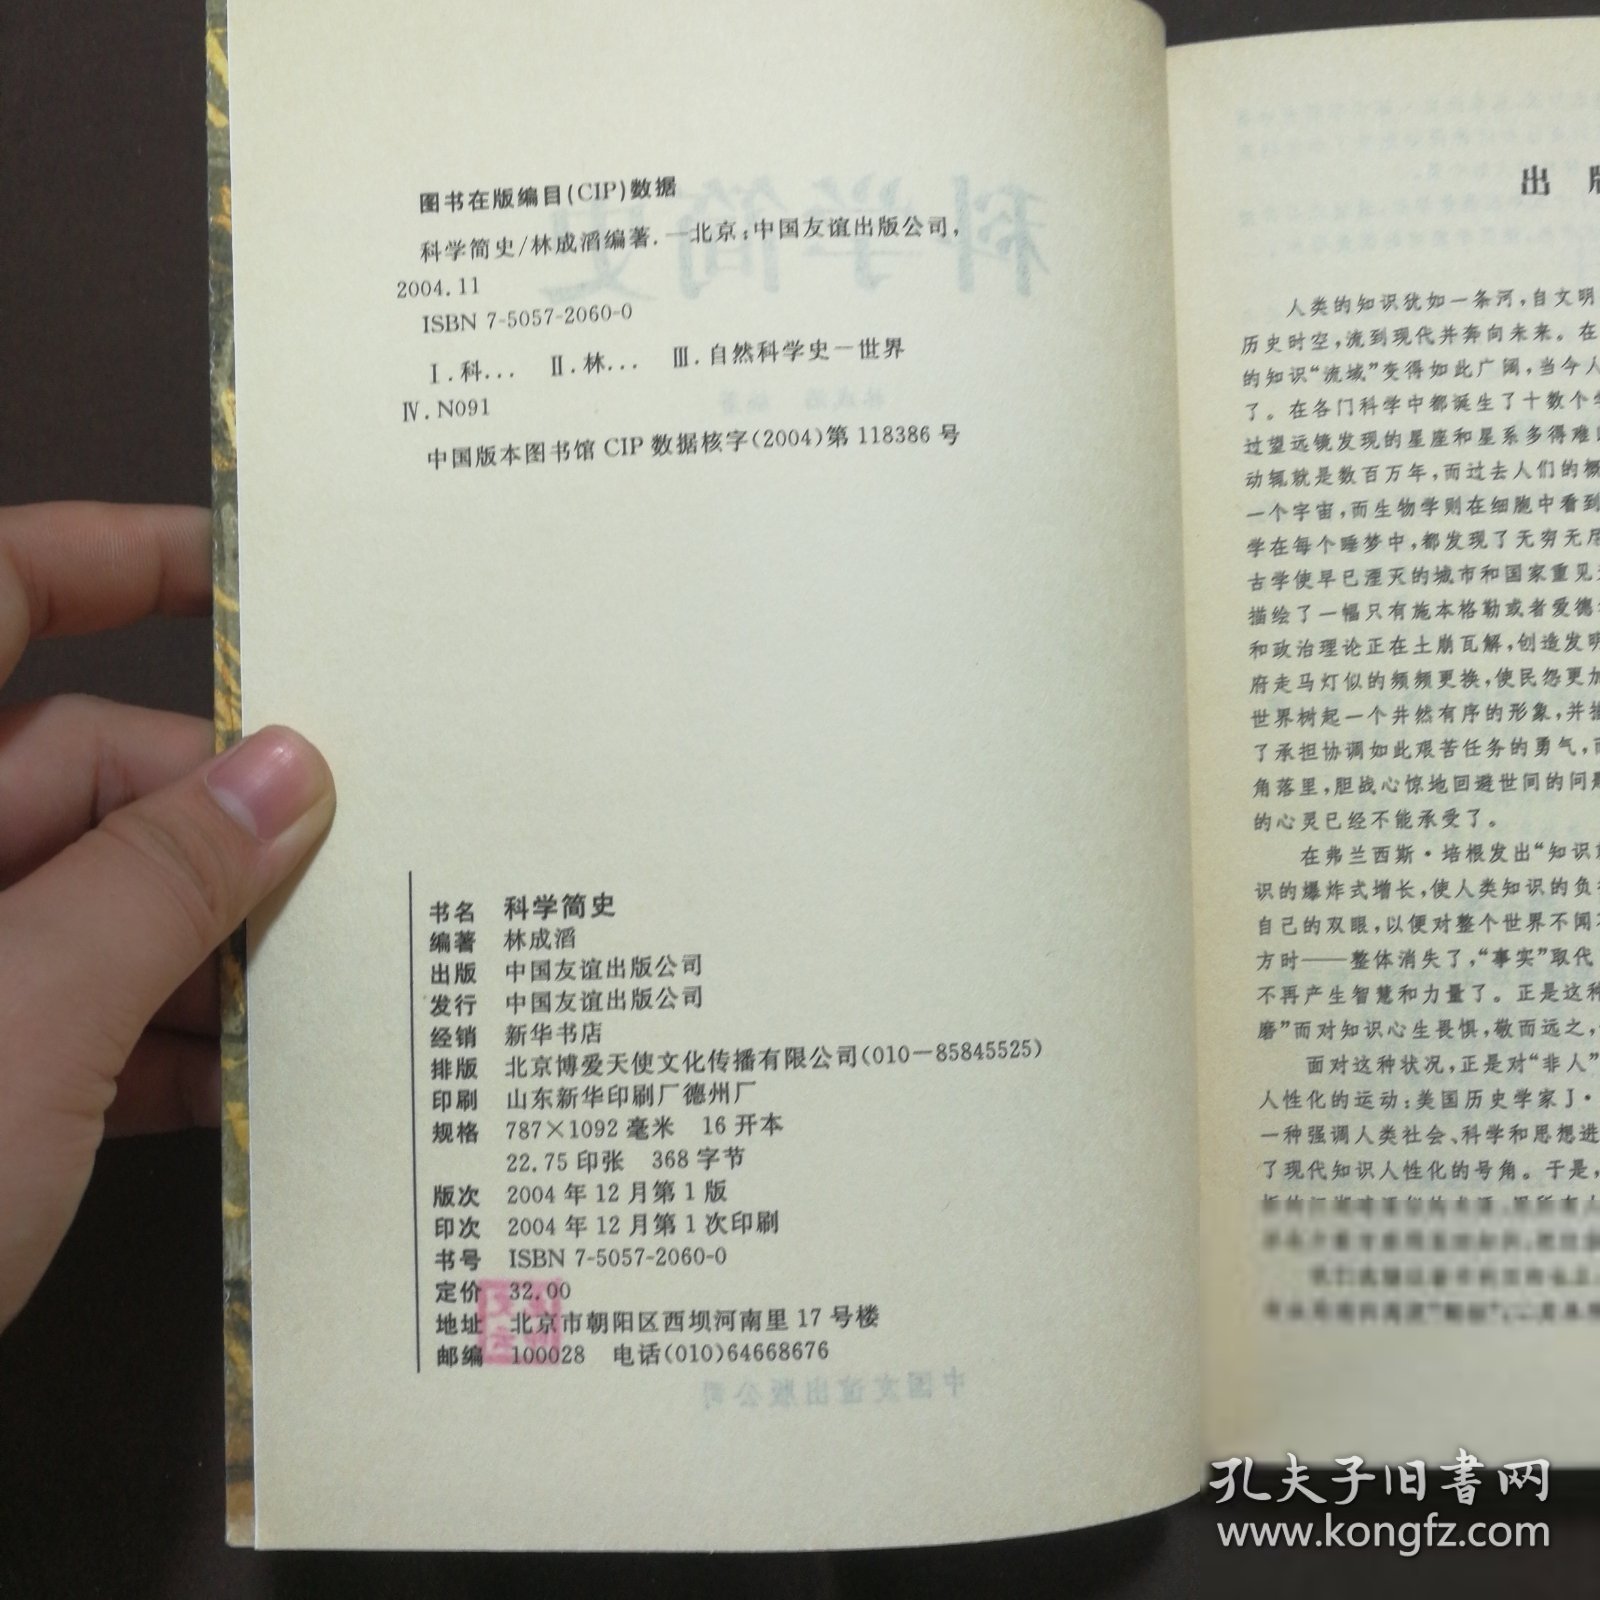 图书在版编目(CIP)数据
科学简史/林成滔编著.—北京:中国友谊出版公司,
2004.11
ISBN 7-5057-2060-0
Ⅰ.科... Ⅱ.林... Ⅲ.自然科学史—世界
Ⅳ.N091
中国版本图书馆 CIP 数据核字(2004)第 118386 号
书名 科学简史
编著 林成滔
出版 中国友谊出版公司
发行 中国友谊出版公司
经销 新华书店
排版 北京博爱天使文化传播有限公司(010—85845525)
印刷 山东新华印刷厂德州厂
规格 787×1092 毫米 16 开本
22.75 印张 368 字节
版次 2004 年 12 月第 1 版
印次 2004 年 12 月第 1 次印刷
书号 ISBN 7-5057-2060-0
定价 32.00
地址 北京市朝阳区西坝河南里 17 号楼
邮编 100028 电话(010)64668676
出
人类的知识犹如一条河,自文明
历史时空,流到现代并奔向未来。在
的知识“流域”变得如此广阔,当今人
了。在各门科学中都诞生了十数个
过望远镜发现的星座和星系多得难
动辄就是数百万年,而过去人们的概
一个宇宙,而生物学则在细胞中看到
学在每个睡梦中,都发现了无穷无尽
古学使早已湮灭的城市和国家重见
描绘了一幅只有施本格勒或者爱德
和政治理论正在土崩瓦解,创造发明
府走马灯似的频频更换,使民怨更加
世界树起一个井然有序的形象,并
了承担协调如此艰苦任务的勇气,而
角落里,胆战心惊地回避世间的问题
的心灵已经不能承受了。
在弗兰西斯·培根发出“知识
识的爆炸式增长,使人类知识的负
自己的双眼,以便对整个世界不闻
方时——整体消失了,“事实”取代
不再产生智慧和力量了。正是这种
磨”而对知识心生畏惧,敬而远之,
面对这种状况,正是对“非人”
人性化的运动:美国历史学家J·
一种强调人类社会、科学和思想进
了现代知识人性化的号角。于是,
孔夫子旧书网
www.kongfz.com